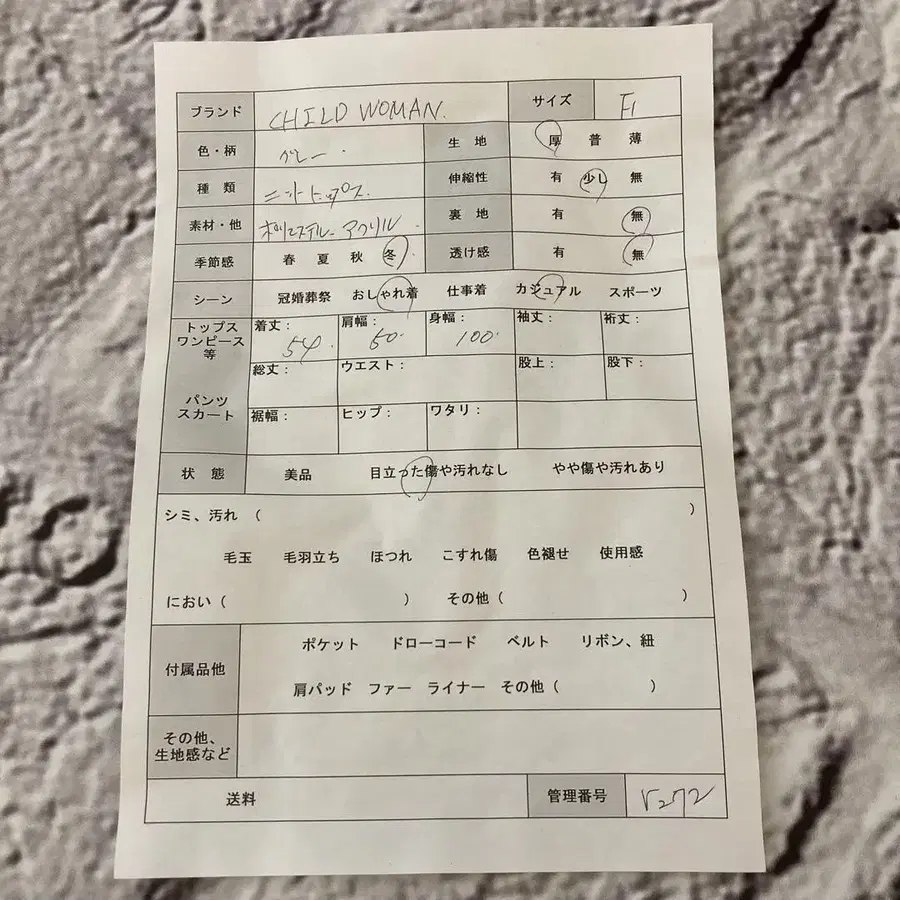 ブランド CHILD WOMAN. サイズ F
色・柄 グレー 生地 厚 普 薄
種類 ニットトップス 伸縮性 有 少し 無
素材・他 ポリエステル アクリル 裏地 有 無
季節感 春 夏 秋 冬 透け感 有 無
シーン 冠婚葬祭 おしゃれ着 仕事着 カジュアル スポーツ
トップス ワンピース 等 着丈: 54 肩幅: 60 身幅: 100 袖丈: 裄丈:
パンツ スカート 総丈: ウエスト: 股上: 股下:
裾幅: ヒップ: ワタリ:
状態 美品 目立った傷や汚れなし やや傷や汚れあり
シミ、汚れ ( )
毛玉 毛羽立ち ほつれ こすれ傷 色褪せ 使用感
におい ( ) その他 ( )
付属品他 ポケット ドローコード ベルト リボン、紐
肩パッド ファー ライナー その他 ( )
その他、
生地感など
送料 管理番号